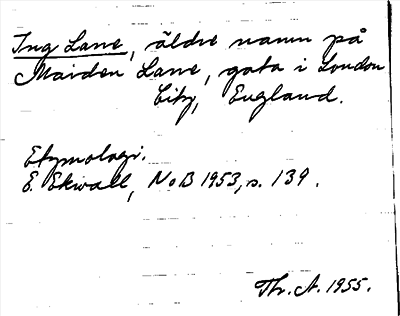 Ing Lane, äldre namn på
Maiden Lane, gata i London
City, England.
Etymologi.
E. Ekwall, NoB 1953, s. 139.
Th. A. 1955.